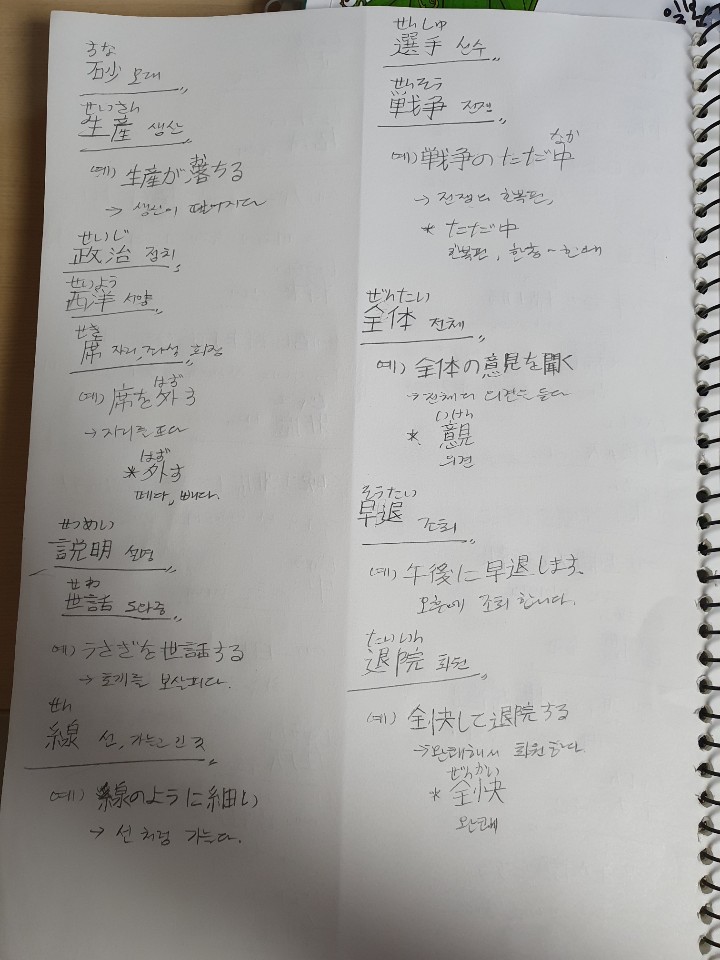 すな
砂 모래
せいさん
生産 생산
예) 生産が落ちる
→ 생산이 떨어지다
せいじ
政治 정치
せいよう
西洋 서양
せき
席 자리, 좌석
はず
예) 席を外す
→ 자리를 뜨다
はず
*外す
떼다, 빼다.
せつめい
説明 설명
せわ
世話 보살핌
예) うさぎを世話する
→ 토끼를 보살피다.
せん
線 선, 가늘고 긴 것
예) 線のように細い
→ 선처럼 가늘다.
せんしゅ
選手 선수
せんそう
戦争 전쟁
なか
예) 戦争のただ中
→ 전쟁의 한복판,
* ただ中
한복판, 한창~한때
ぜんたい
全体 전체
예) 全体の意見を聞く
→전체의 의견을 듣다
いけん
* 意見
의견
そうたい
早退 조퇴
예) 午後に早退します。
오후에 조퇴 합니다.
たいいん
退院 퇴원
예) 全快して退院する
→완쾌해서 퇴원하다.
ぜんかい
* 全快
완쾌